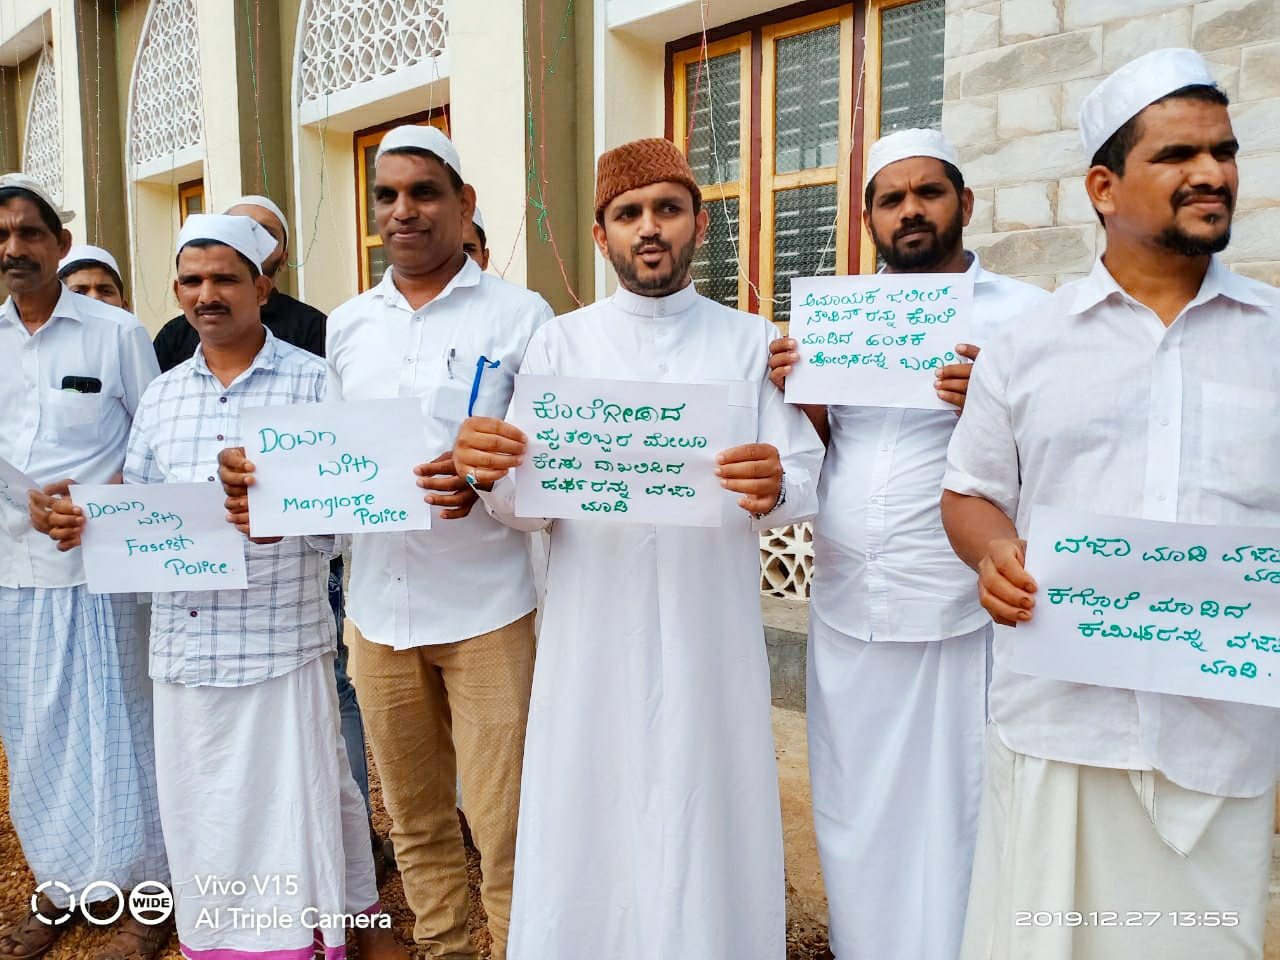 Down
with
Fascist
Police.
Down
with
Manglore
Police.
ಕೊಲೆಗೀಡಾದ
ಮೃತರಿಬ್ಬರ ಮೇಲೂ
ಕೇಸು ದಾಖಲಿಸಿದ
ಹರ್ಷರನ್ನು ವಜಾ
ಮಾಡಿ
ಅಮಾಯಕ ಜಲೀಲ್-
ನೌಶಿನ್ ರನ್ನು ಕೊಲೆ
ಮಾಡಿದ ಹಂತಕ
ಪೋಲಿಸರನ್ನು ಬಂಧಿಸಿ
ವಜಾ ಮಾಡಿ ವಜಾ
ಮಾಡಿ
ಕಗ್ಗೊಲೆ ಮಾಡಿದ
ಕಮಿಷರನ್ನು ವಜಾ
ಮಾಡಿ.
WIDE
Vivo V15
AI Triple Camera
2019.12.27 13:55